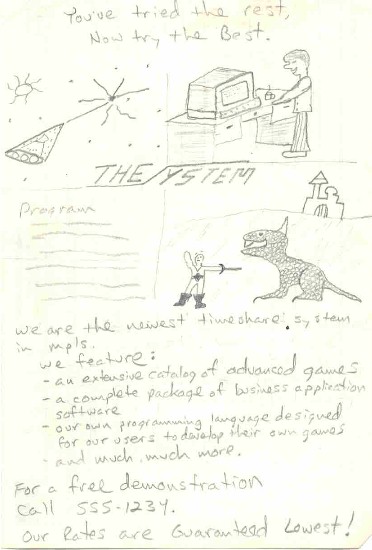 You've tried the rest,
Now try the Best.
THE SYSTEM
Program
we are the newest timeshare system
in mpls.
we feature:
- an extensive catalog of advanced games
- a complete package of business application
software
- our own programming language designed
for our users to develop their own games
- and much, much more.
For a free demonstration
Call 555-1234.
Our Rates are Guaranteed Lowest!